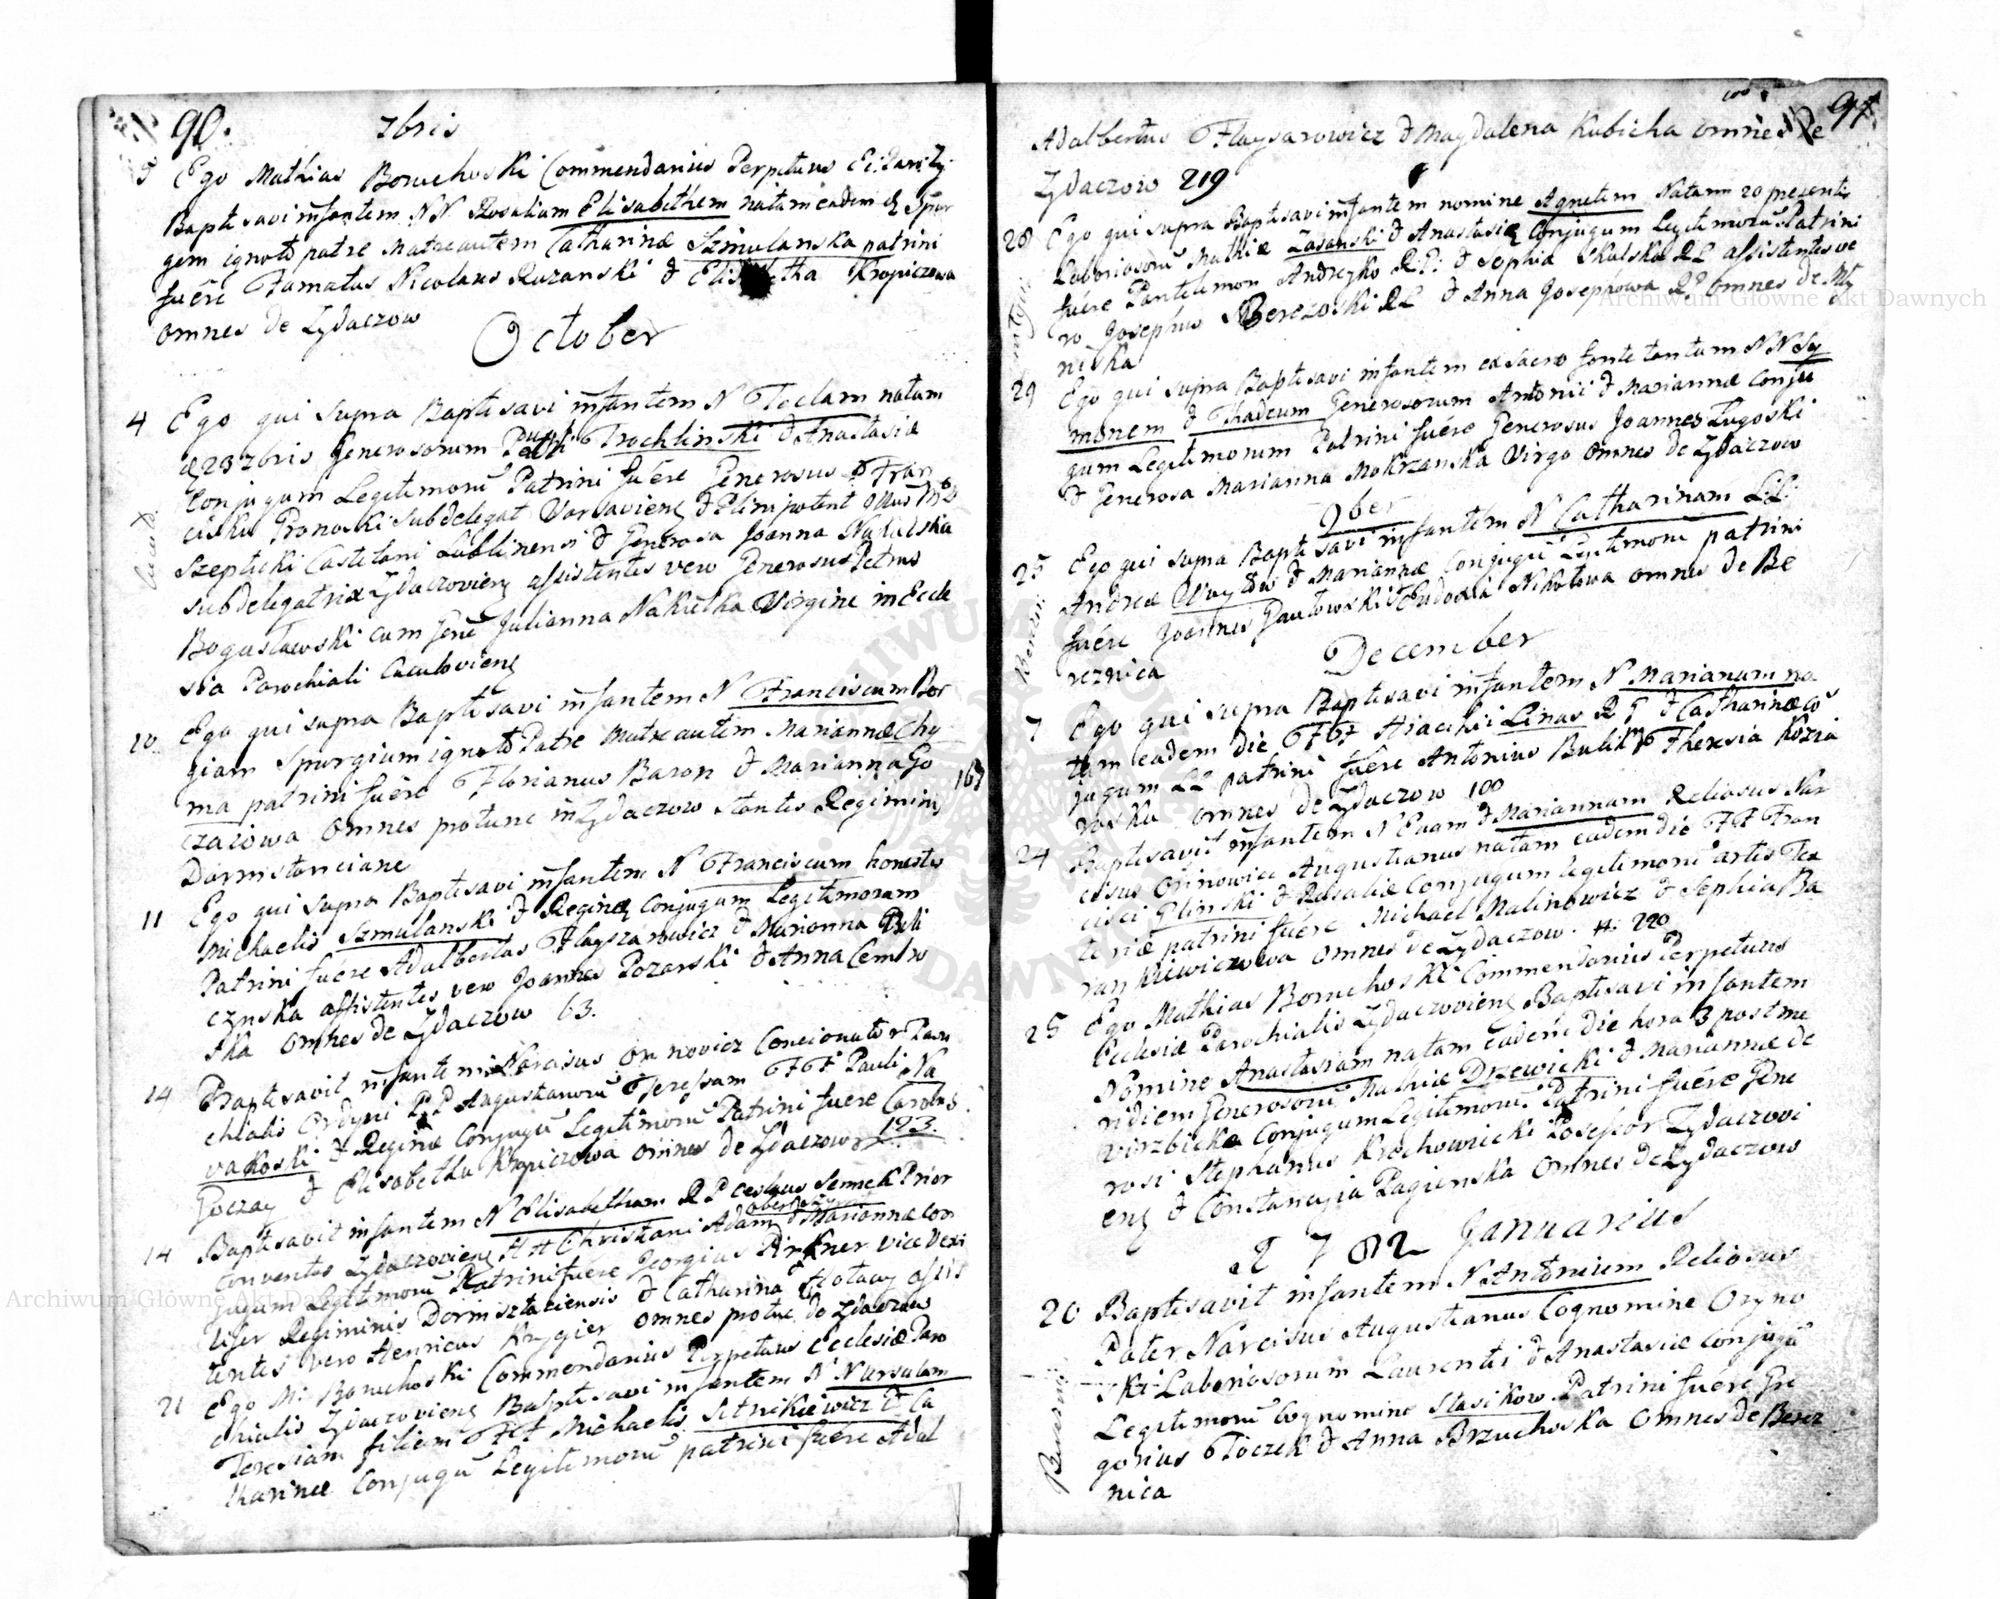 90.
7bris
5 Ego Mathias Boruchoski Commendarius Perpetuus Ec: Par: Zy:
Baptisavi infantem NN Rosaliam Elisabethem natam eadem Spur
gem ignoto patre Matre autem Catharinæ Szmulanska patrini
fuére Famatus Nicolaus Ruzanski & Elisabetha Kropiczowa
omnes de Zydaczow
October
4 Ego qui supra Baptisavi infantem N Teclam natam
23 7bris Generosorum Pauli Trochlinski & Anastasiæ
Conjugum Legitimorũ Patrini fuére Generosus Fran
ciskus Pronoski Subdelegat Varsaviens & Plinipotent
Szepticki Castelani Lublinensi & Generosa Joanna Nakielska
subdelegatrix Zydaczoviens assistentes vero Generosus Petrus
Boguslawski cum Julianna Nakielska Virgine in Eccle
sia Parochiali Cuculoviens
10 Ego qui supra Baptisavi infantem N Franciscum Bor
giam Spurgium ignoto Patre Matre autem Mariannæ Chy
ma patrini fuére Florianus Baron & Marianna Go
czalowa omnes protunc in Zydaczow stantes Regiminis 163
Darmstanciane
11 Ego qui supra Baptisavi infantem N Franciscum honestus
Michaelis Szmulanski & Reginæ Conjugum Legitimorum
Patrini fuére Adalbertus Flayszarowicz & Marianna
czynska assistentes vero Joannes Pozarski & Anna Cembro
ska omnes de Zydaczow 63.
14 Baptisavit infantem Narcisus Orinovicz Concionator Paro
chialis Ordyni PP Augustianorũ Teressam FF Pauli No
vakoski & Reginæ Conjugũ Legitimorũ Patrini fuére Carolus
Goczay & Elisabetha Kropiczowa omnes de Zydaczow 123.
14 Baptisavit infantem N Elisabetham RP Ceslaus Semek Prior
Conventus Zydaczoviens Christiani Adam & Mariannæ con
jugum Legitimorũ Patrini fuére Georgius Pirkner vice
User Regiminis Dormisztaciensis & Catharina Hotawy assis
tentes vero Henricus Krygier omnes protũc de Zydaczow
21 Ego M: Boruchoski Commendarius Perpetuus Ecclesiæ Paro
chialis Zydaczoviens Baptisavi infantem N Nursulam
Teresiam filiam FF Michaelis Sitnikiewicz & Ca
tharinæ Conjugũ Legitimorũ patrini fuére Adal
91
Adalbertus Flaysarowicz & Magdalena Kubicka omnes de
Zydaczow 219
28 Ego qui supra Baptisavi infantem nomine Agnetem Natam 20 presentis
Laboriosorũ Mathiæ Zasanski & Anastasiæ Conjugum Legitimorũ Patrini
fuére Pantelimon Andreyko RP: & Sophia Skalska RL assistentes ve
ro Josephus Berezoski RL & Anna Josephowa RP omnes de My
niska
29 Ego qui supra Baptisavi infantem ex sacro fonte tantum NN Sy
monem & Thadeum Generosorum Antonii & Mariannæ conju
gum Legitimorum Patrini fuére Generosus Joannes Lugoski
& Generosa Marianna Mokrzanska Virgo omnes de Zydaczow
9ber
25 Ego qui supra Baptisavi infantem N Catharinam LL:
Andreæ Woytow & Mariannæ Conjugũ Legitimorũ patrini
fuére Joannes Pawlowski & Eudoxia Nikolowa omnes de Be
reznica
December
7 Ego qui supra Baptisavi infantem N Marianum na
tum eadem die FF Hiacihii Linas RG & Catharinæ cõ
jugum LL patrini fuére Antonius Bulik & Theresia Kozia
roska omnes de Zydaczow 100
24 Baptisavit infantem N Evam & Mariannam Reliosus Nar
cisus Orinowicz Augustianus natam eadem die FF Fran
cisci Glinski & Rosaliæ Conjugum legitimorũ artis Tex
toriæ patrini fuére Michael Malinowicz & Sophia Ba
rankiewiczowa omnes de Zydaczow. H: 220
25 Ego Mathias Boruchoski Commendarius Perpetuus
Ecclesiæ Parochialis Zydaczoviens Baptisavi infantem
Nomine Anastasiam natam eadem die hora 3 post me
ridiem Generosorũ Mathiæ Drzewicki & Mariannæ de
Wirzbicka Conjugum Legitimorũ. Patrini fuére Gene
rosi Stephanus Krochowicki Posessor Zydaczovi
ens & Constancyia Pagienska omnes de Zydaczow
1782 Januarius
20 Baptisavit infantem N Antonium Reliosus
Pater Narcisus Augustianus Cognomine Oryno
ski Laboriosorum Laurenti & Anastasiæ conjugũ
Legitimorũ Cognomine Stasikow. Patrini fuére Gre
gorius Toczek & Anna Brzuchoska omnes de Berez
nica
Archiwum Główne Akt Dawnych
Archiwum Główne Akt Dawnych